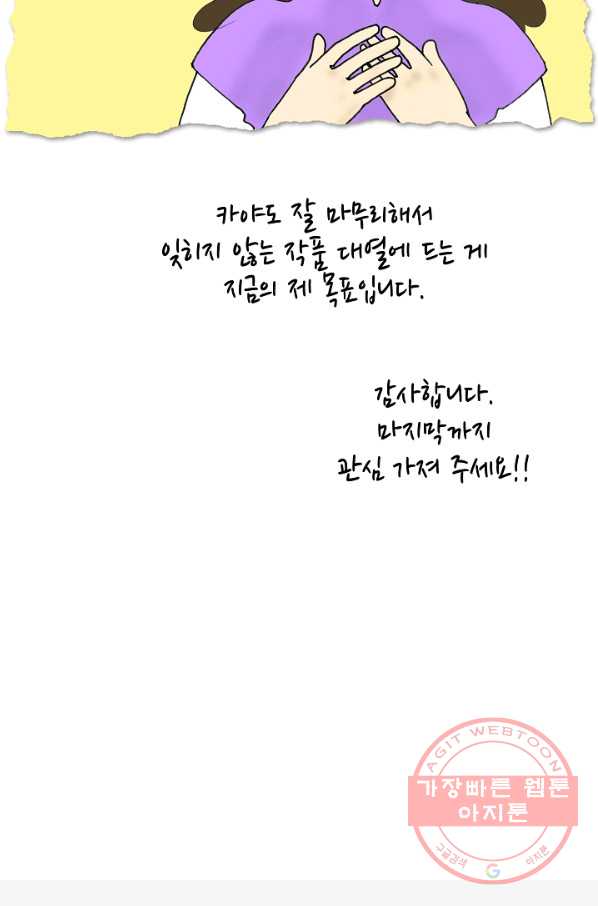 카야도 잘 마무리해서
잊히지 않는 작품 대열에 드는 게
지금의 제 목표입니다.
감사합니다.
마지막까지
관심 가져 주세요!!
AGIT WEBTOON
가장빠른 웹툰
아지툰
구글검색 G 아지툰